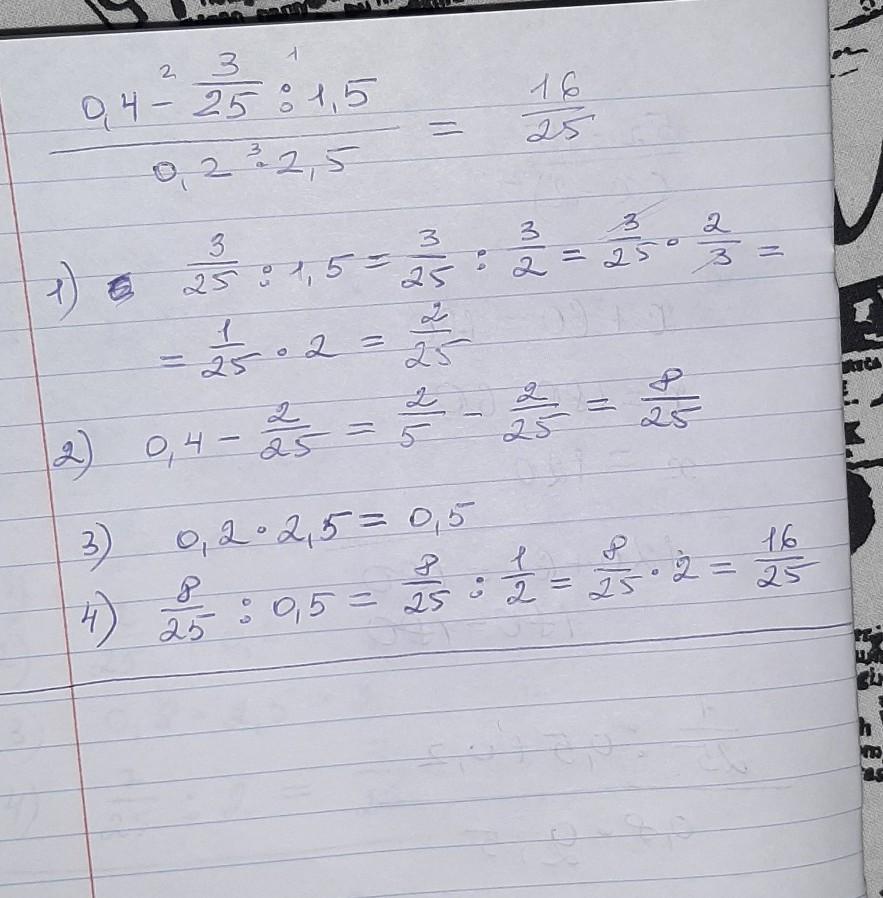 0,4 - 3/25 : 1,5 / 0,2 · 2,5 = 16/25
1) 3/25 : 1,5 = 3/25 : 3/2 = 3/25 · 2/3 =
= 1/25 · 2 = 2/25
2) 0,4 - 2/25 = 2/5 - 2/25 = 8/25
3) 0,2 · 2,5 = 0,5
4) 8/25 : 0,5 = 8/25 : 1/2 = 8/25 · 2 = 16/25